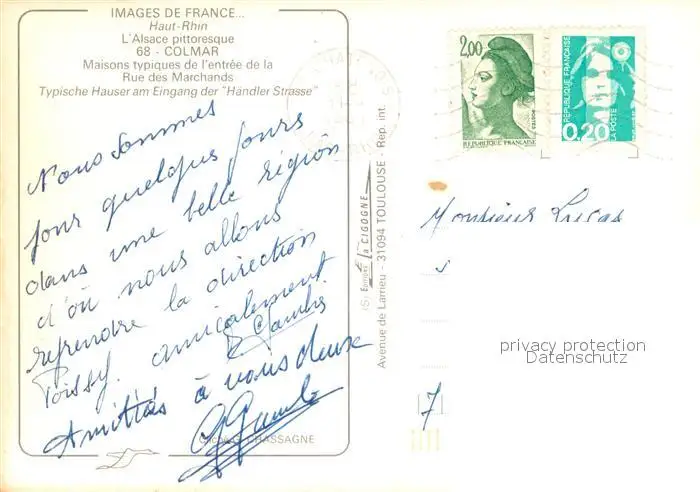 IMAGES DE FRANCE...
Haut-Rhin
L'Alsace pittoresque
68 - COLMAR
Maisons typiques de l'entrée de la
Rue des Marchands
Typische Hauser am Eingang der "Händler Strasse"
Nous sommes
pour quelques jours
dans une belle région
d'où nous allons
reprendre la direction
Poissy. amicalement
Amitiés à vous deux
CHASSAGNE
Editions la CIGOGNE
Avenue de Larrieu - 31094 TOULOUSE - Rep. int.
2,00
REPUBLIQUE FRANÇAISE
REPUBLIQUE FRANÇAISE
0,20
LA POSTE
Monsieur Lucas
7
privacy protection
Datenschutz